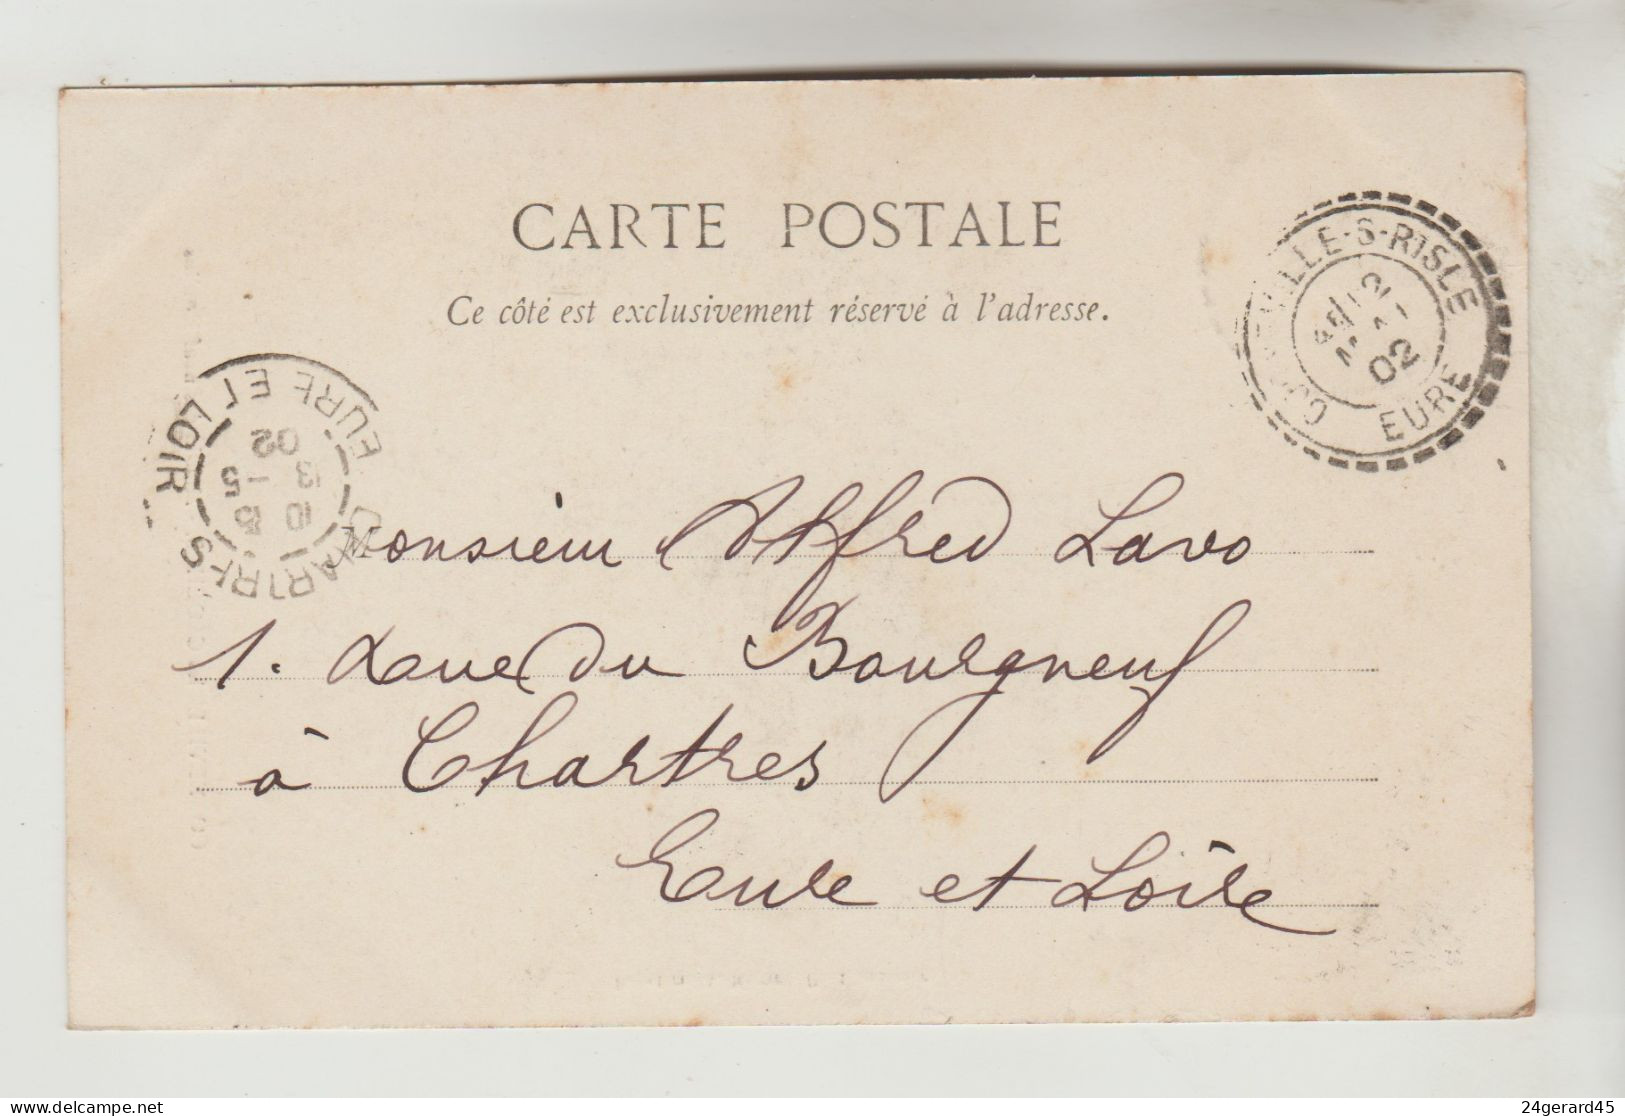 CARTE POSTALE
Ce côté est exclusivement réservé à l'adresse.
VILLE-S-RISLE
02
EURE
CHARTRES
10
13 -5
02
EURE ET LOIR
Monsieur Alfred Lavo
1. Rue du Bourgneuf
à Chartres
Eure et Loire
24gerard45
delcampe.net